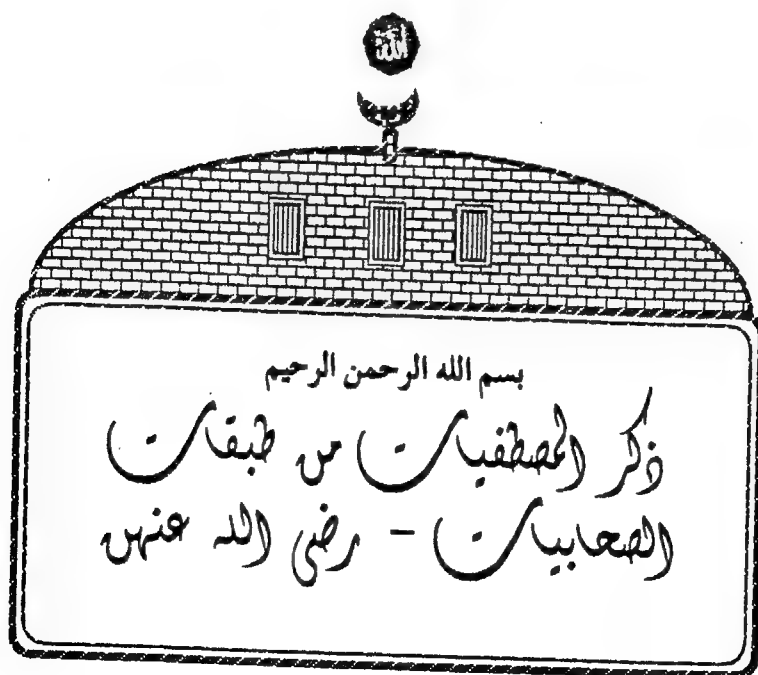 الله
بسم الله الرحمن الرحيم
ذكر المصطفيات من طبقات
الصحابيات - رضي الله عنهن